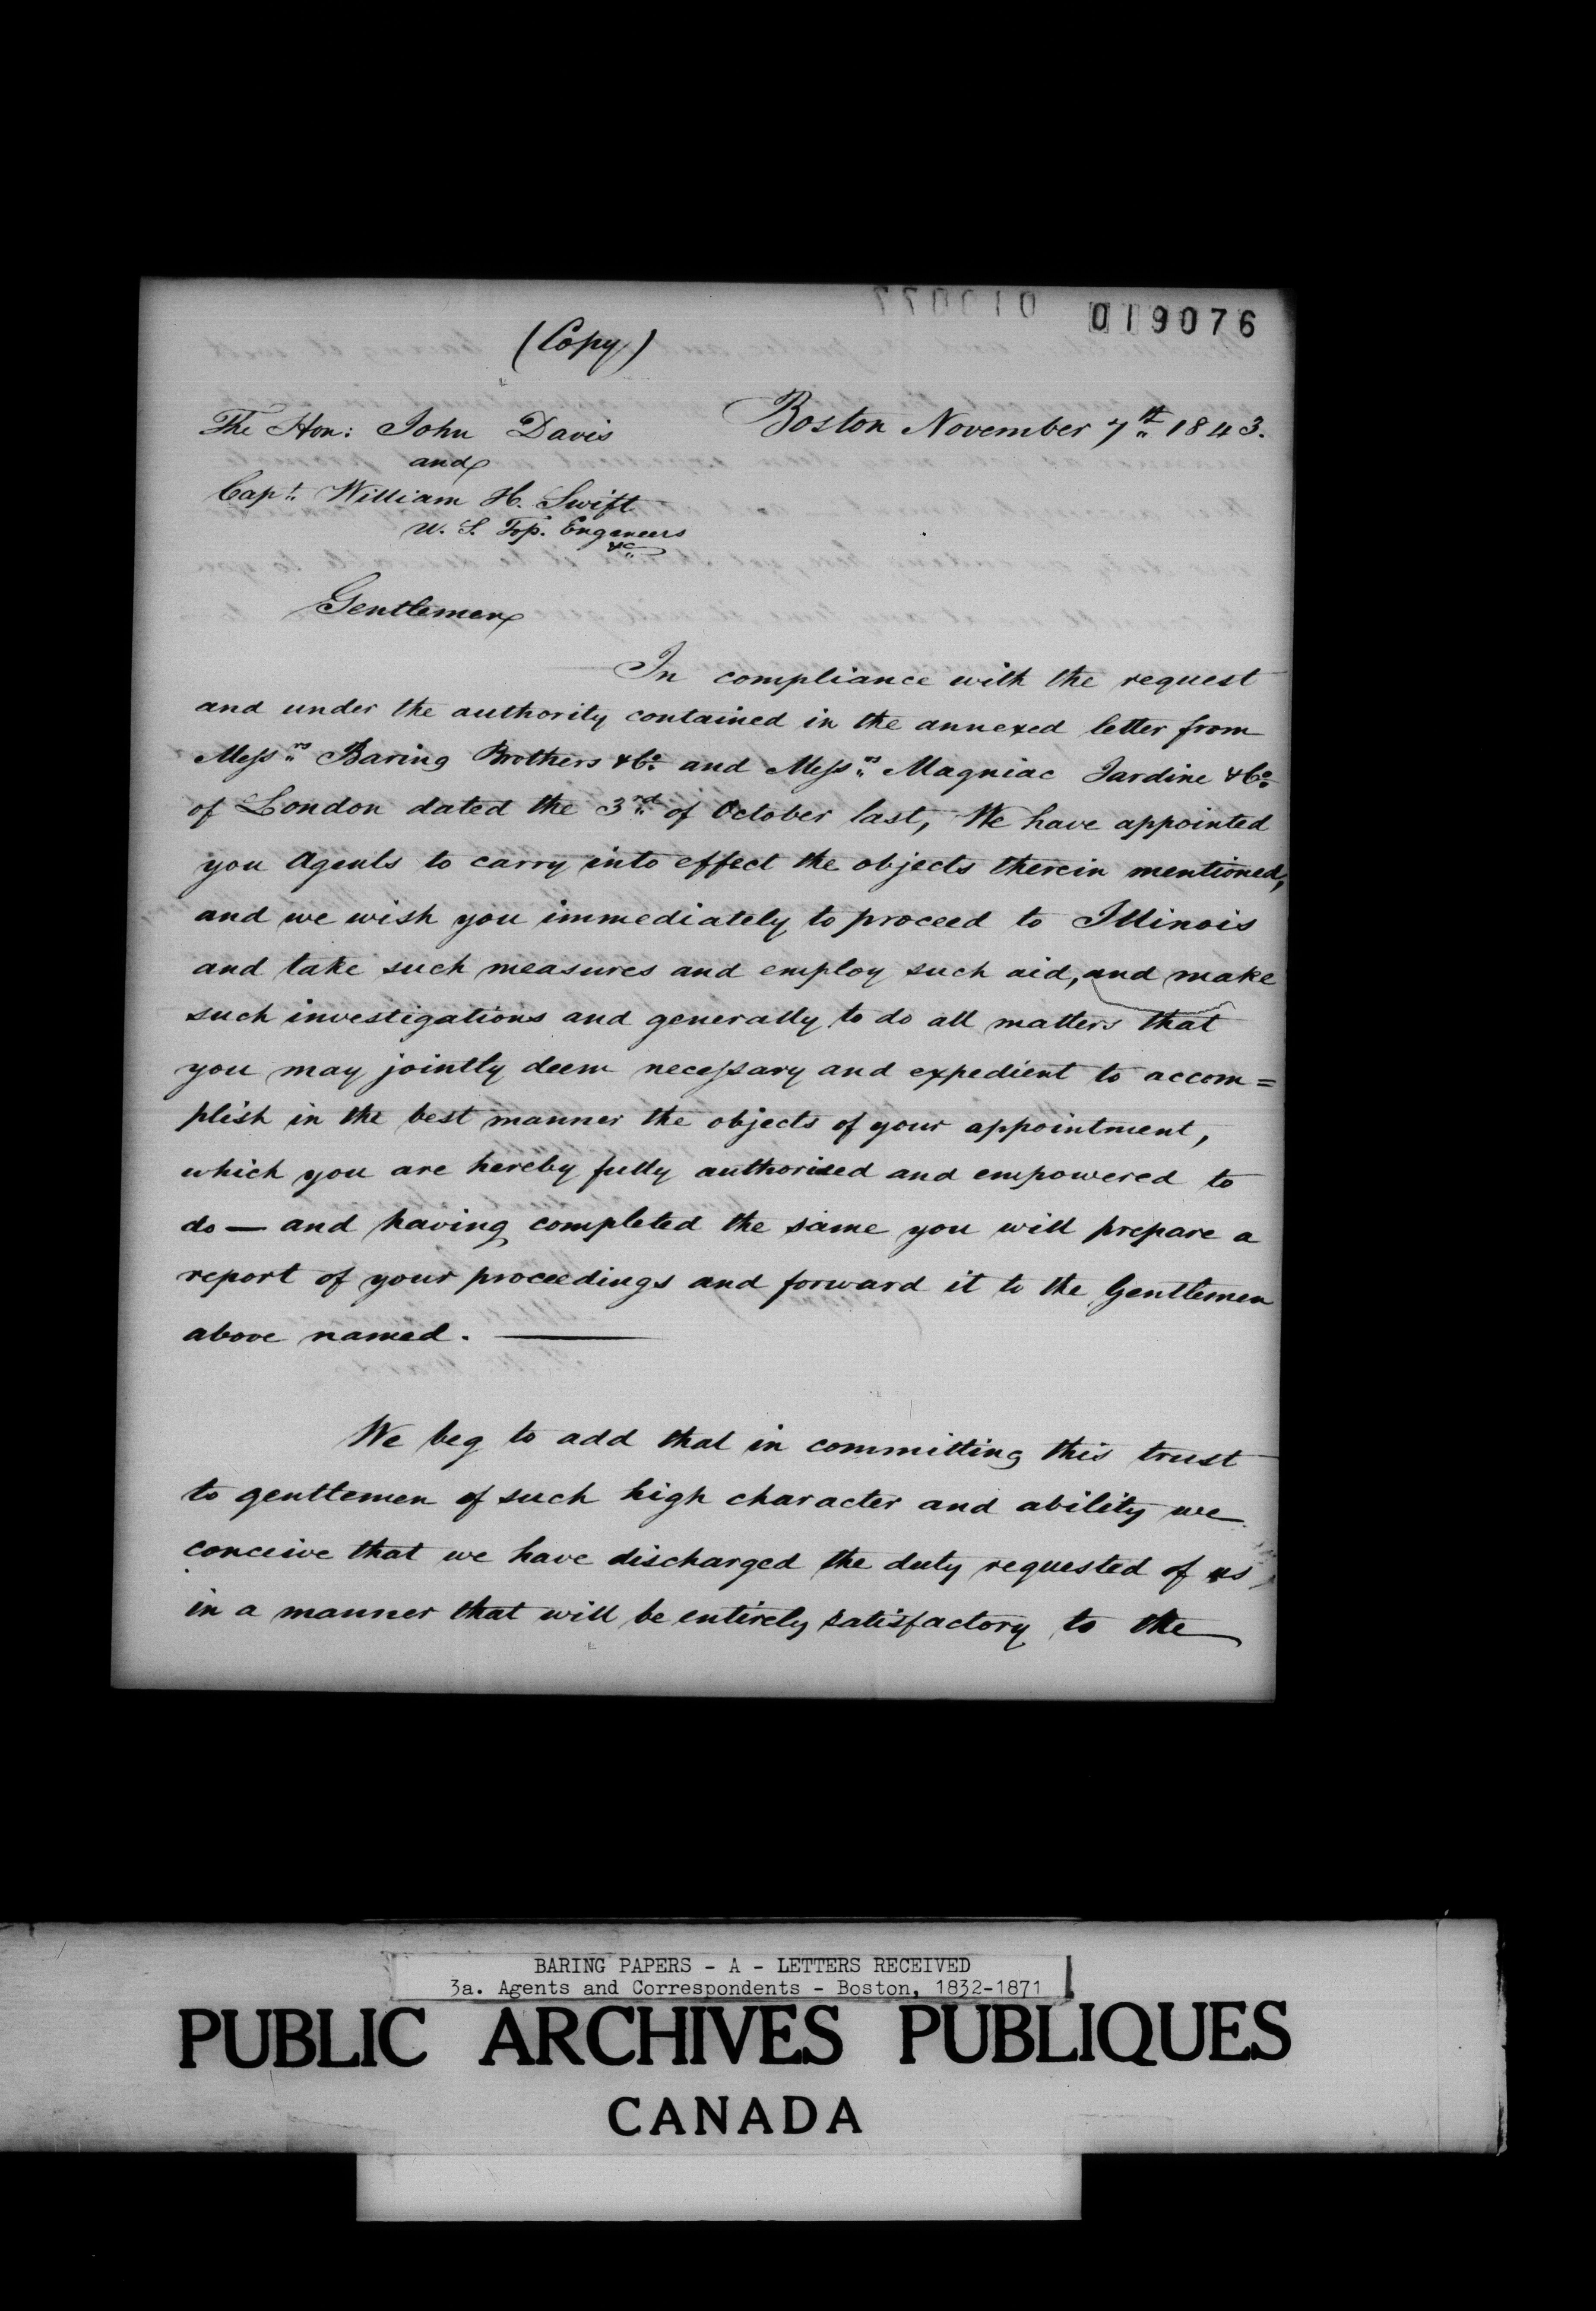 019076
(Copy)
Boston November 7th 1843.
The Hon: John Davis
and
Capt. William H. Swift
U. S. Top. Engeneers
&c
Gentlemen
In compliance with the request
and under the authority contained in the annexed letter from
Messrs Baring Brothers &Co. and Messrs Magniac Jardine &Co.
of London dated the 3rd of October last, We have appointed
you Agents to carry into effect the objects therein mentioned,
and we wish you immediately to proceed to Illinois
and take such measures and employ such aid, and make
such investigations and generally to do all matters that
you may jointly deem necessary and expedient to accom=
plish in the best manner the objects of your appointment,
which you are hereby fully authorised and empowered to
do — and having completed the same you will prepare a
report of your proceedings and forward it to the Gentlemen
above named. —
We beg to add that in committing this trust
to gentlemen of such high character and ability we
conceive that we have discharged the duty requested of us
in a manner that will be entirely satisfactory to the
BARING PAPERS - A - LETTERS RECEIVED
3a. Agents and Correspondents - Boston, 1832-1871
PUBLIC ARCHIVES PUBLIQUES
CANADA